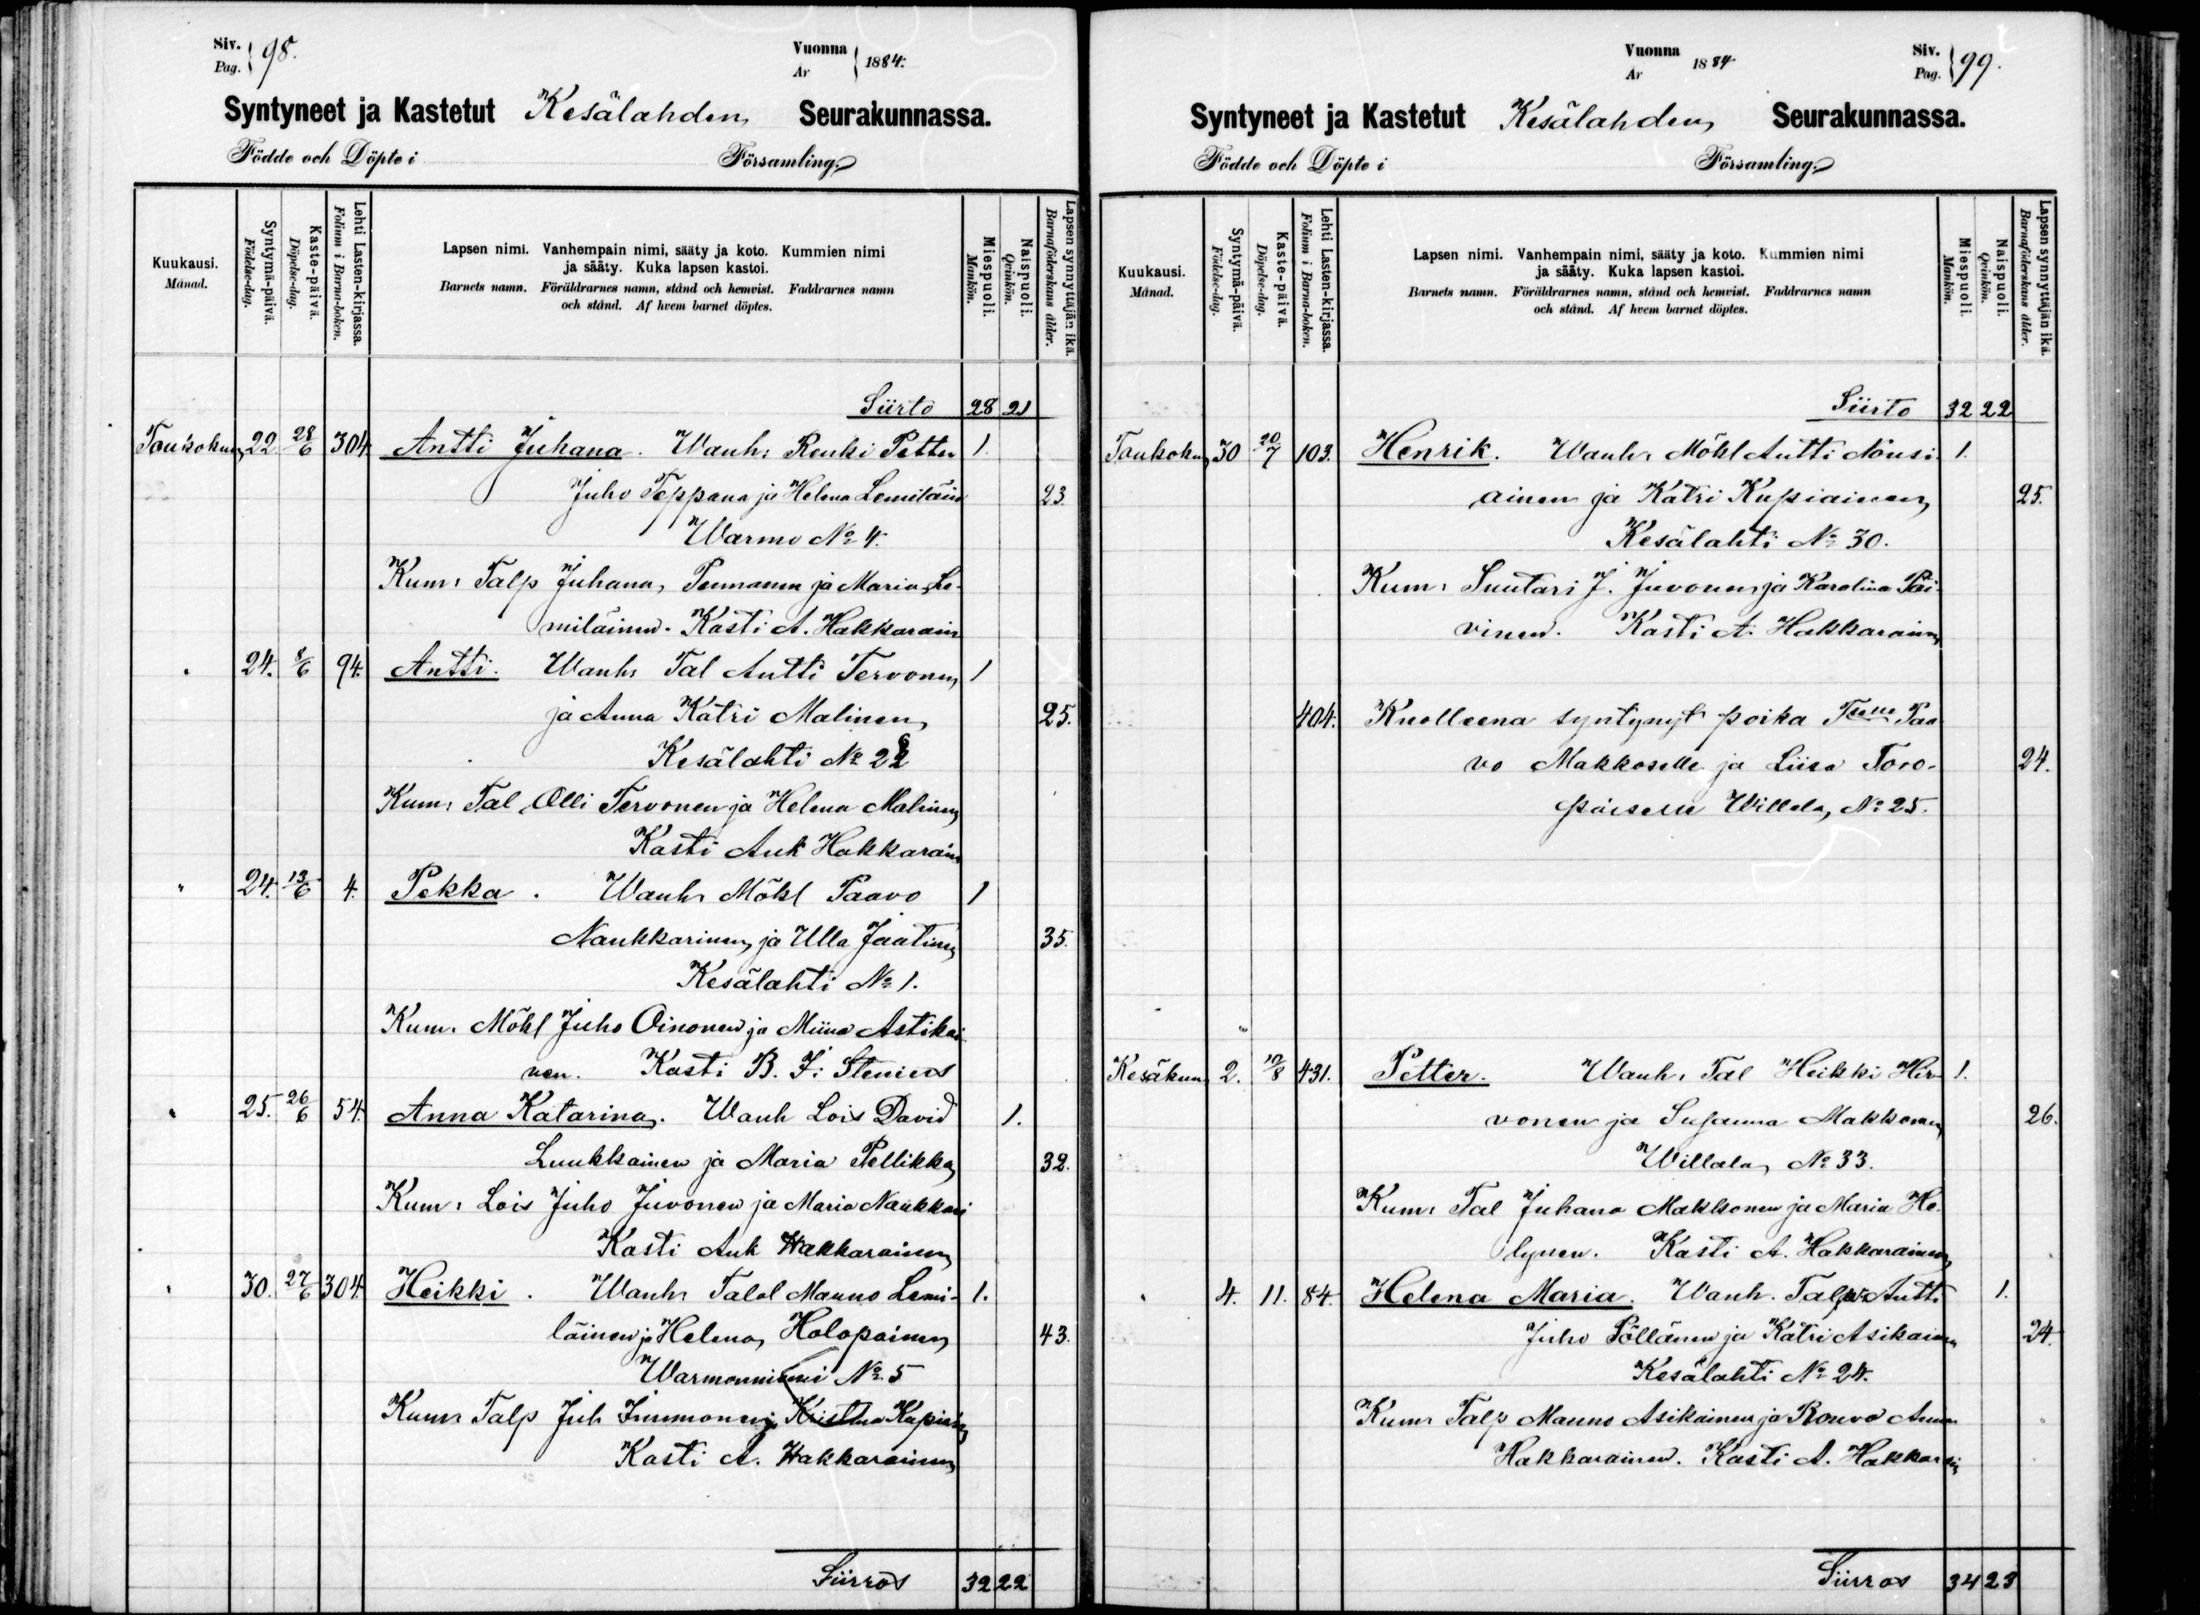 Siv. Pag. } 98.
Vuonna År } 1884.
Syntyneet ja Kastetut Kesälahden Seurakunnassa.
Födde och Döpte i Församling.
Kuukausi. Månad.
Syntymä-päivä. Födelse-dag.
Kaste-päivä. Döpelse-dag.
Lehti Lasten-kirjassa. Folium i Barna-boken.
Lapsen nimi. Vanhempain nimi, sääty ja koto. Kummien nimi
ja sääty. Kuka lapsen kastoi.
Barnets namn. Föräldrarnes namn, stånd och hemvist. Faddrarnes namn
och stånd. Af hvem barnet döptes.
Miespuoli. Mankön.
Naispuoli. Qvinkön.
Lapsen synnyttäjän ikä. Barnaföderskans ålder.
Siirto 28 21
Toukokuu 22 28/6 304 Antti Juhana. Wanh: Renki Petter 1.
Juho Teppana ja Helena Lemiläin 23.
Warmo No 4.
Kum: Talp Juhana Pennanen ja Maria Le-
miläinen. Kasti A. Hakkarain
" 24. 8/6 94. Antti. Wanh: Tal Antti Tervonen 1
ja Anna Katri Malinen, 25.
Kesälahti No 22
Kum: Tal Olli Tervonen ja Helena Malinen
Kasti Auk Hakkarain
" 24. 13/6 4. Pekka. Wanh: Mökl Paavo 1
Naukkarinen, ja Ulla Jaatinen 35.
Kesälahti No 1.
Kum: Mökl Juho Oinonen ja Miina Astikai-
nen. Kasti B. F. Stenius
" 25. 26/6 54. Anna Katarina. Wanh Lois David 1.
Luukkainen ja Maria Pellikka 32.
Kum: Lois Juho Juvonen ja Maria Naukkari
Kasti Auk Hakkarainen
" 30. 27/6 304. Heikki. Wanh: Talol Mauno Lemi- 1.
läinen ja Helena Holopainen 43.
Warmonniemi No 5
Kum: Talp Juh Immonen ja Kristina Kupiain
Kasti A. Hakkarainen
Siirros 32 22
Vuonna År 1884
Siv. Pag. } 99.
Syntyneet ja Kastetut Kesälahden Seurakunnassa.
Födde och Döpte i Församling.
Kuukausi. Månad.
Syntymä-päivä. Födelse-dag.
Kaste-päivä. Döpelse-dag.
Lehti Lasten-kirjassa. Folium i Barna-boken.
Lapsen nimi. Vanhempain nimi, sääty ja koto. Kummien nimi
ja sääty. Kuka lapsen kastoi.
Barnets namn. Föräldrarnes namn, stånd och hemvist. Faddrarnes namn
och stånd. Af hvem barnet döptes.
Miespuoli. Mankön.
Naispuoli. Qvinkön.
Lapsen synnyttäjän ikä. Barnaföderskans ålder.
Siirto 32 22
Toukokuu 30 20/7 103. Henrik. Wanh: Mökl Antti Nousi- 1.
ainen ja Katri Kupiainen, 25.
Kesälahti No 30.
Kum: Suutari J. Juvonen ja Karolina Päi-
vinen. Kasti A. Hakkarainen
404. Kuolleena syntynyt poika Paa-
vo Makkoselle ja Liisa Toro- 24.
paiselle Willala, No 25.
Kesäkuu 2. 10/8 431. Petter. Wanh: Tal Heikki Hir- 1.
vonen ja Susanna Makkonen 26.
Willala, No 33.
Kum: Tal Juhana Makkonen ja Maria He-
lynen. Kasti A. Hakkarainen
" 4. 11. 84. Helena Maria. Wanh. Talp Antti 1.
Juho Pöllänen ja Katri Asikainen 24.
Kesälahti No 24.
Kum: Talp Mauno Asikainen ja Rouva Anna
Hakkarainen. Kasti A. Hakkarain
Siirros 34 23